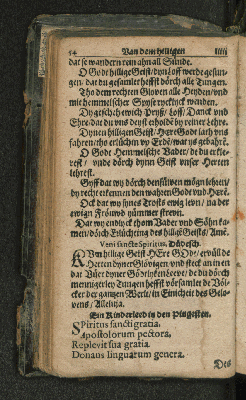 54 Van dem hilligen
dat se wandern rein ahn all Sünde.
O Godt hillige Geist / von Loff werde gesun-
gen / dat du gesamlet heffst dörch alle Tungen.
Tho dem rechten Gloven alle Heyden / vnd
mit hemmelscher Spyse
Dy geschehe ewich Pryß / Loff / Danck vnd
Ehre / dat du vns deyst erholdē by reiner Lehre.
Dynen hilligen Geist / HErr Godt lath vns
fahren / tho erlüchten vp Erdē / wat ys
O Godt Hemmelsche Vader / de du
vnde dörch dynn Geist unser Herten
Gyff dat wy dörch densülven mögn lehren /
by recht erkennen den wahren Godt vnd HErē.
Ock dat wy synes Trosts ewig levn / na der
ewign Fröuwd nümmer strevn.
Dat wy endlyck thom Vader vnd Söhn ka-
men / dörch Erlüchting des hillgē Geists / Amē.
Veni sancte Spiritus, Düdesch.
KVm hillige Geist HERe GOdt / ervüll de
Herten dyner Glövigen / vnd steck an in en
dat Vüer dyner Gödtlyken Leeve / de du dörch
mennigerley Tungen heffst vörsamlet de Völ-
cker der gantzen Werlt / in Einicheit des Gelo-
vens / Alleluia.
Ein Kinderleed in den Pingsten.
SPiritus sancti gratia,
Apostolorum pectora,
Replevit sua gratia,
Donans linguarum genera.
Des